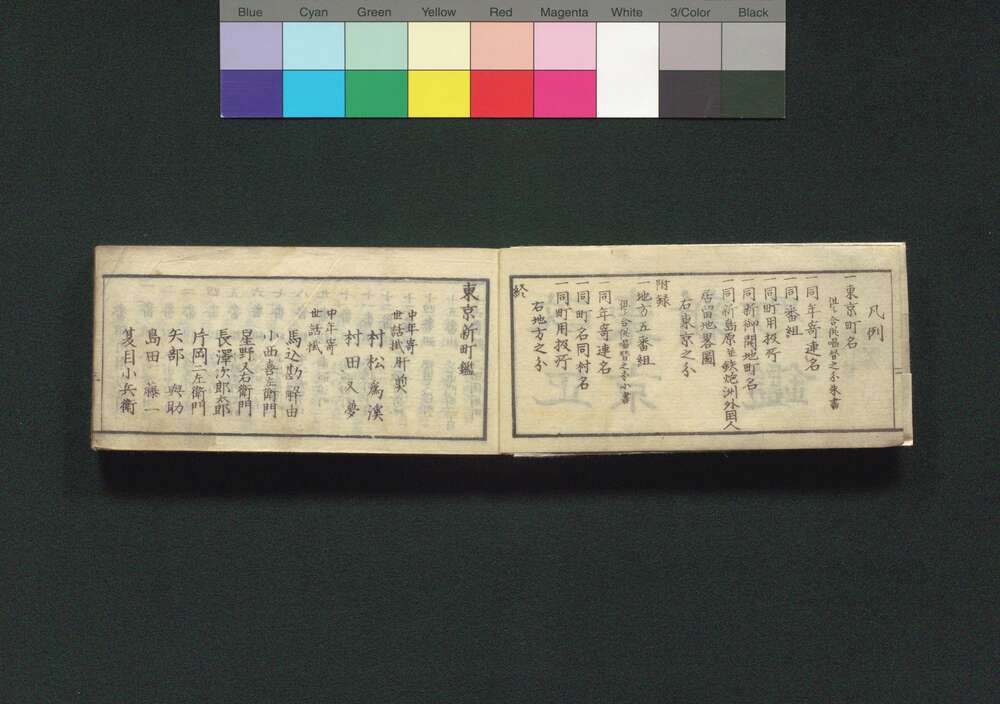 Blue Cyan Green Yellow Red Magenta White 3/Color Black
凡例
一東京町名
但シ合従唱替之分朱書
一同年寄連名
一同番組
一同町用扱所
一同新御開地町名
一同新島原並鉄炮洲外国人
居留地畧図
右東京之分
附録
一地方五番組
但シ合従唱替之分小書
一同年寄連名
一同町名同村名
一同町用扱所
右地方之分
終
東京新町鑑
中年寄
世話掛肝煎
村松為溪
村田又夢
中年寄
世話掛
馬込勘解由
小西喜左衛門
星野又右衛門
長澤次郎太郎
片岡仁左衛門
矢部與助
島田藤一
夏目小兵衛